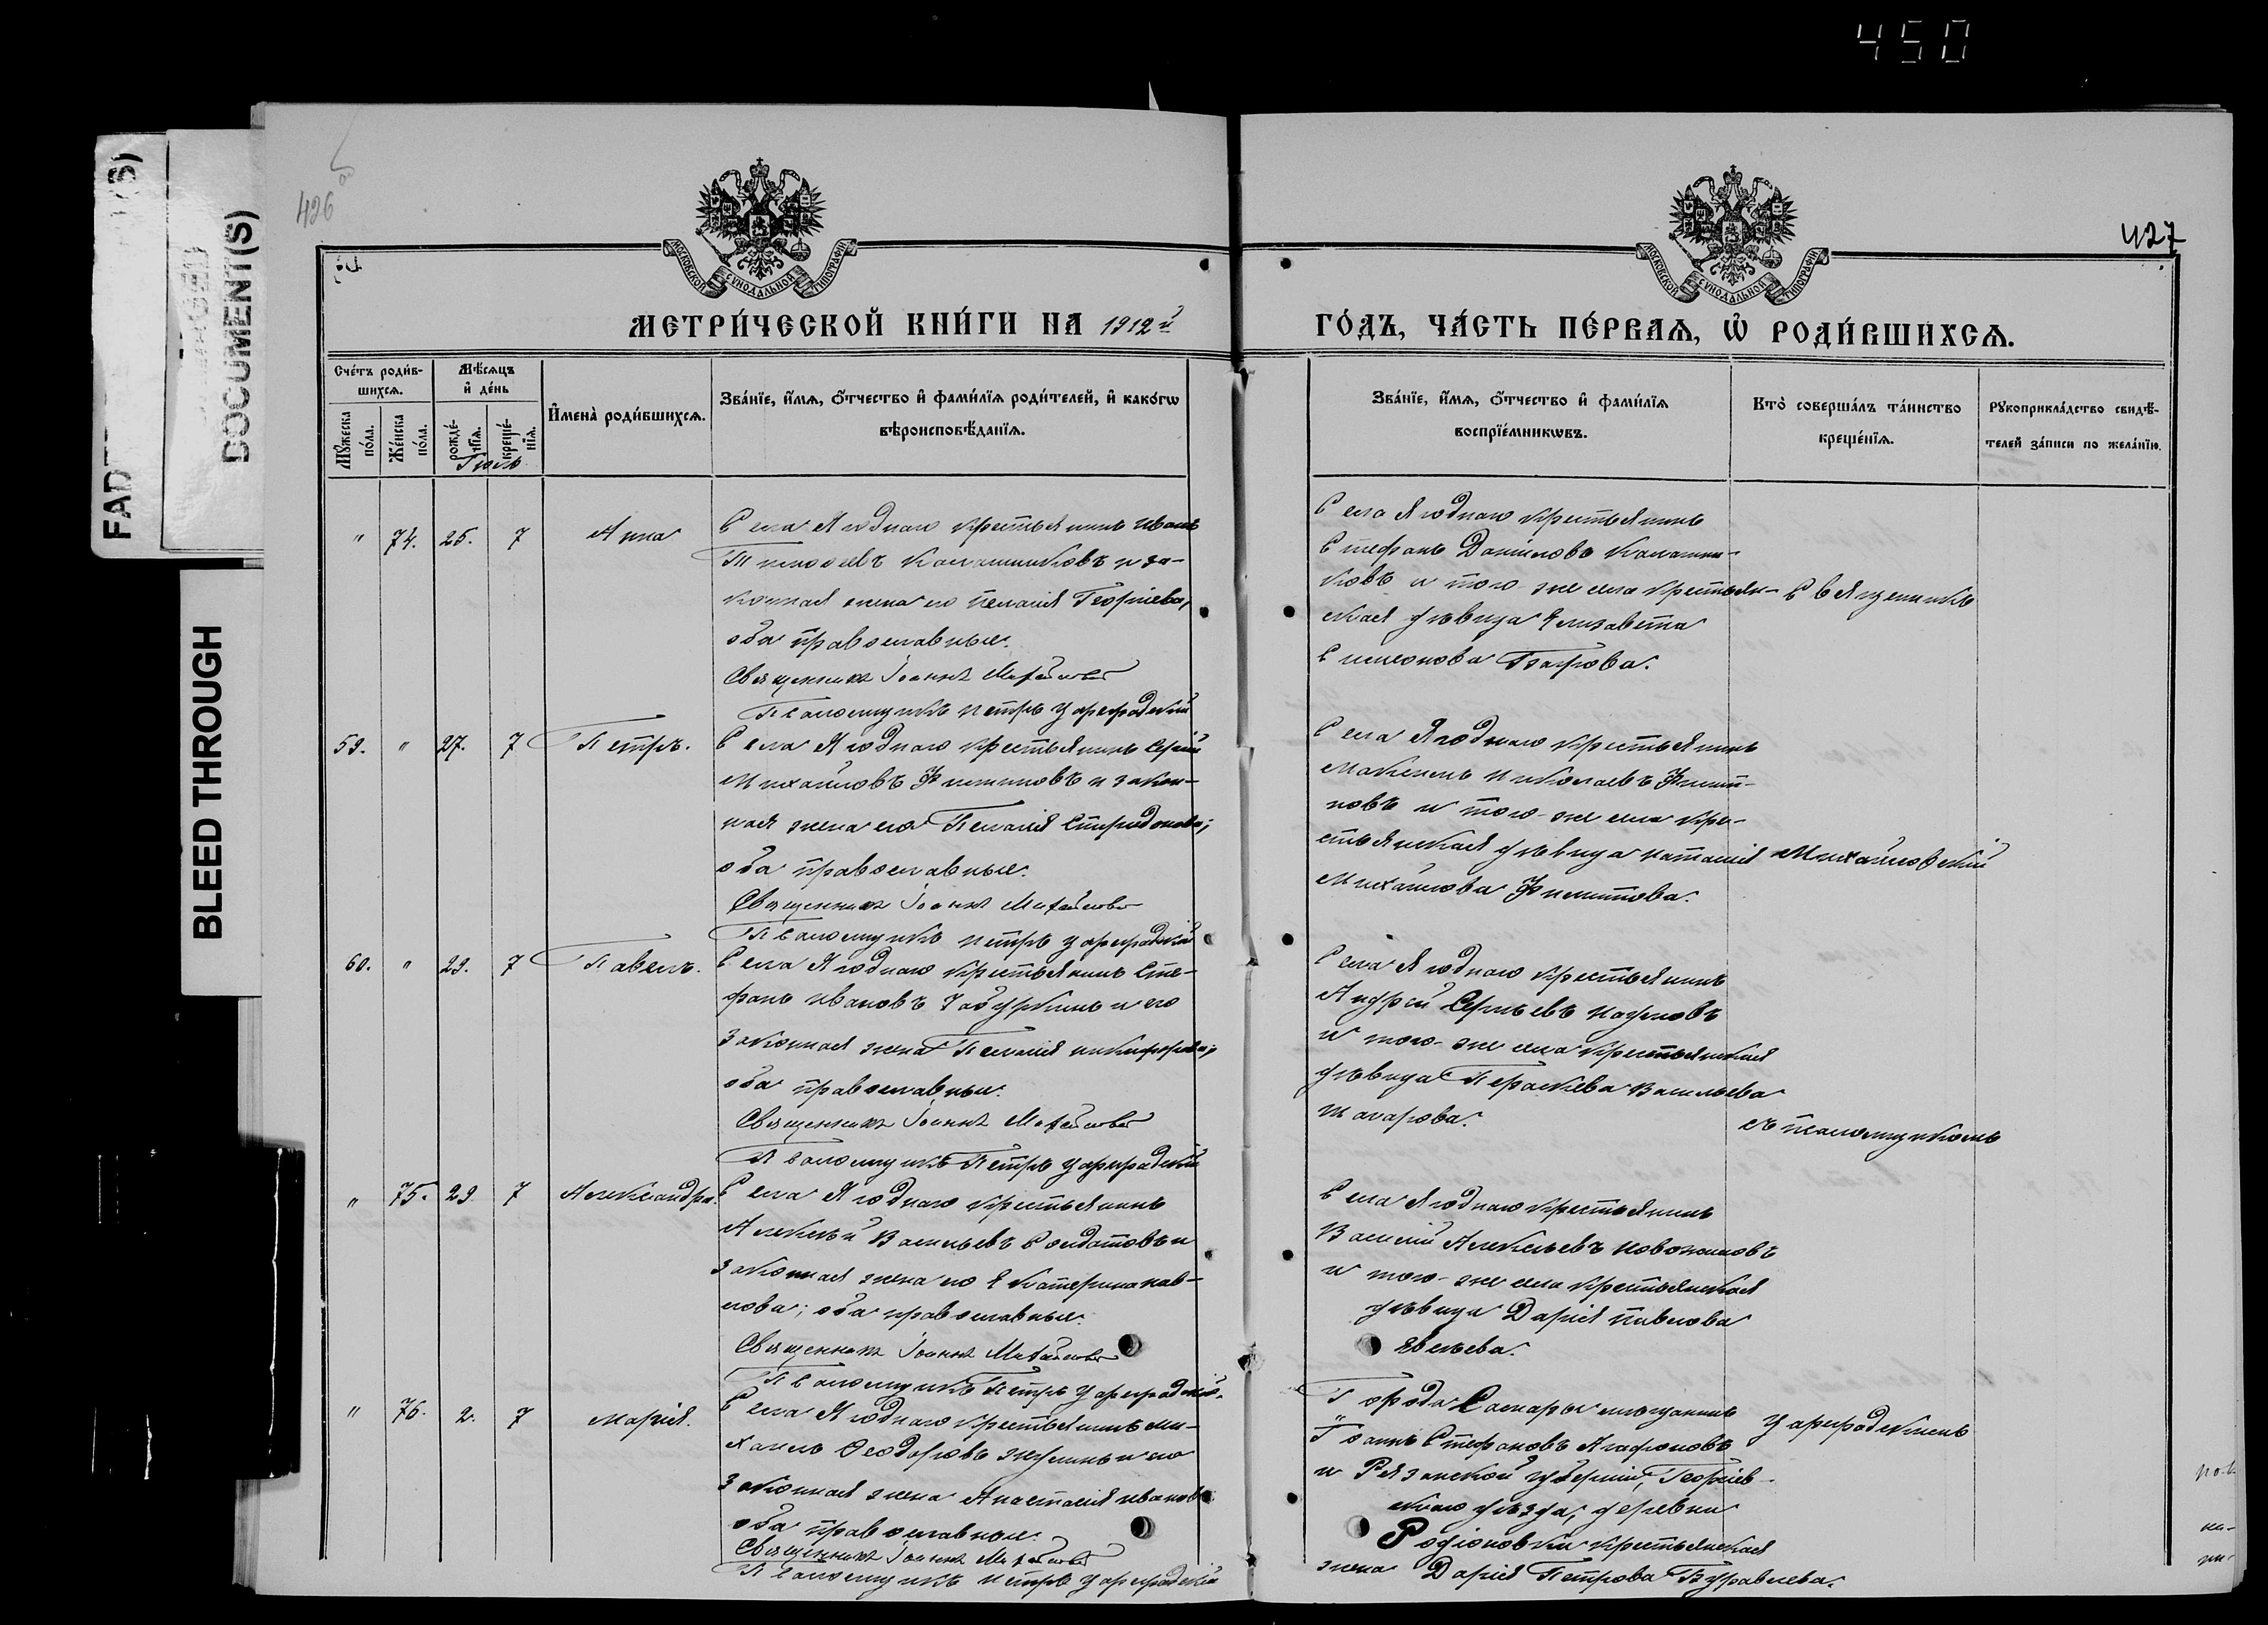 450
FADED
DOCUMENT(S)
BLEED THROUGH
426
427
МОСКОВСКОЙ СѴНОДАЛЬНОЙ ТИПОГРАФІИ
МОСКОВСКОЙ СѴНОДАЛЬНОЙ ТИПОГРАФІИ
МЕТРИ́ЧЕСКОЙ КНИ́ГИ НА 1912й
ГО́ДЪ, ЧА́СТЬ ПЕ́РВАѦ, Ѡ҆ РОДИ́ВШИХСѦ.
Сче́тъ роди́в-
шихсѧ.
Мꙋ́жеска по́ла.
Же́нска по́ла.
Мѣ́сѧцъ
и҆ де́нь
рожде́-
нїѧ.
креще́-
нїѧ.
Іюль
И҆мена̀ роди́вшихсѧ.
Зва́нїе, и҆́мѧ, ѻ҆́тчество и҆ фами́лїѧ роди́телей, и҆ како́гѡ
вѣроисповѣ́данїѧ.
Зва́нїе, и҆́мѧ, ѻ҆́тчество и҆ фами́лїѧ
воспрїе́мникѡвъ.
Кто̀ соверша́лъ та́инство
креще́нїѧ.
Рꙋкоприкла́дство свидѣ́-
телей за́писи по жела́нїю.
" 74. 25. 7 Анна
Села Ягоднаго крестьянинъ Иванъ
Тимофеевъ Калашниковъ и за-
конная жена его Пелагія Георгіева,
оба православные.
Священникъ Іоаннъ Михайловскій
Псаломщикъ Петръ Цареградскій
Села Ягоднаго крестьянинъ
Стефанъ Даниловъ Калашни-
ковъ и того-же села крестьян-
ская дѣвица Елизавета
Симеонова
Священникъ
59. " 27. 7 Петръ.
Села Ягоднаго крестьянинъ Сергій
Михайловъ Филиповъ и закон-
ная жена его Пелагія Спиридонова;
оба православные.
Священникъ Іоаннъ Михайловскій
Псаломщикъ Петръ Цареградскій
Села Ягоднаго крестьянинъ
Максимъ Николаевъ
новъ и того-же села кре-
стьянская дѣвица Наталія
Михайлова
Михайловскій
60. " 29. 7 Павелъ.
Села Ягоднаго крестьянинъ Сте-
фанъ Ивановъ и его
законная жена Пелагія Никифорова;
оба православные.
Священникъ Іоаннъ Михайловскій
Псаломщикъ Петръ Цареградскій
Села Ягоднаго крестьянинъ
Андрей Сергѣевъ
и того-же села крестьянская
дѣвица Параскева Васильева
Макарова.
съ псаломщикомъ
" 75. 29. 7 Александра.
Села Ягоднаго крестьянинъ
Алексѣй Васильевъ Солдатовъ и
законная жена его Екатерина Пав-
лова; оба православные.
Священникъ Іоаннъ Михайловскій
Псаломщикъ Петръ Цареградскій.
Села Ягоднаго крестьянинъ
Василій Алексѣевъ
и того-же села крестьянская
дѣвица Дарія Павлова
" 76. 2. 7 Марія.
Села Ягоднаго крестьянинъ Ми-
хаилъ Ѳеодоровъ и его
законная жена Анастасія Иванова
оба православные.
Священникъ Іоаннъ Михайловскій
Псаломщикъ Петръ Цареградскій
Города Самары мѣщанинъ
Іоаннъ Стефановъ Агафоновъ
и Рязанской губерніи,
скаго уѣзда, деревни
Родіоновки крестьянская
жена Дарія Петрова Журавлева.
Цареградскимъ